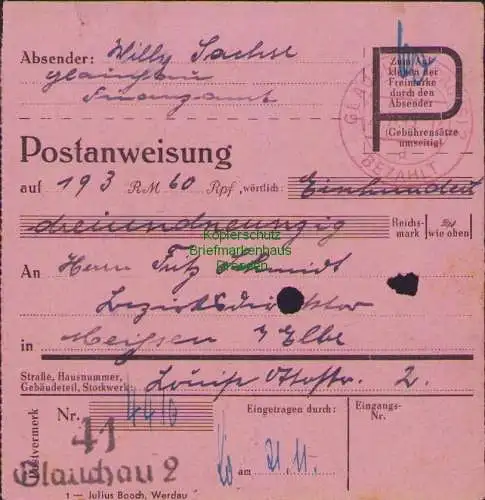 Absender: Willy Sachse
Glauchau
Finanzamt
Zum Auf
kleben der
Freimarke
durch den
Absender
(Gebührensätze
umseitig)
P
BEZAHLT
Postanweisung
auf 193 RM 60 Rpf, wörtlich: Einhundert
dreiundneunzig Reichs-
mark wie oben
Köpferschutz
Briefmarkenhaus
Dresden
An Herrn Fritz Schmidt
Bezirksdirektor
in Meissen / Elbe
Straße, Hausnummer,
Gebäudeteil, Stockwerk: Louise Ottostr. 2.
Postvermerk
Nr. 4416
Eingetragen durch:
Eingangs-
Nr.
41
Glauchau 2
am 21. 11.
1 — Julius Booch, Werdau